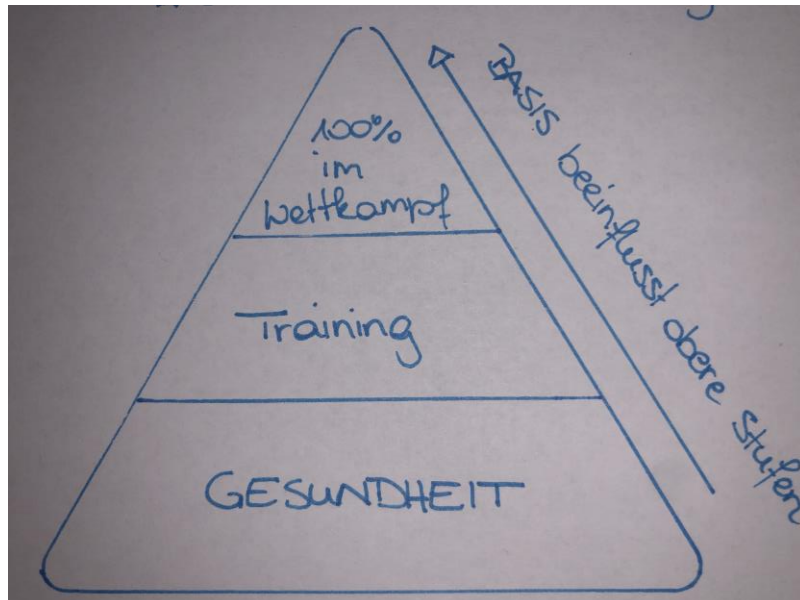 100%
im
Wettkampf
Training
GESUNDHEIT
BASIS beeinflusst obere Stufen